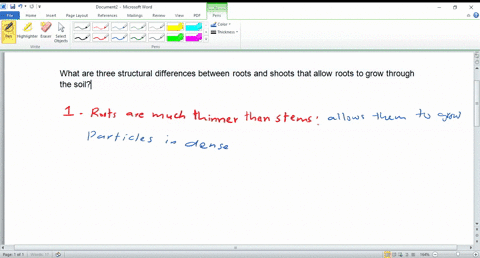 Document2 - Microsoft Word
File Home Insert Page Layout References Mailings Review View PDF Pens
Pen Highlighter Eraser Select Objects
Color
Thickness
Write Pens
What are three structural differences between roots and shoots that allow roots to grow through
the soil?
1 - Roots are much thinner than stems: allows them to grow
Particles in dense
Page: 1 of 1
164%